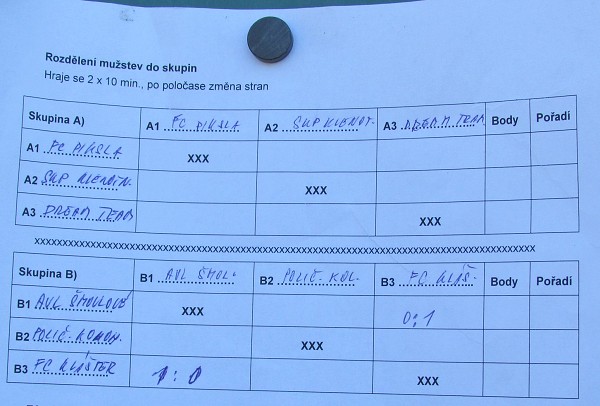 Rozdělení mužstev do skupin
Hraje se 2 x 10 min., po poločase změna stran
Skupina A) A1 FC PIKSLA A2 SKP KLENOT. A3 DREAM TEAM Body Pořadí
A1 FC PIKSLA XXX
A2 SKP XXX
A3 DREAM TEAM XXX
xxxxxxxxxxxxxxxxxxxxxxxxxxxxxxxxxxxxxxxxxxxxxxxxxxxxxxxxxxxxxxxxxxxxxxxxxxxxxxxxxxxxxxx
Skupina B) B1 AVL ŠMOL. B2 POLIČ-KOL. B3 FC KLÁŠ. Body Pořadí
B1 AVL ŠMOULOVÉ XXX 0:1
B2 POLIČ-KOMON. XXX
B3 FC KLÁŠTER 1:0 XXX